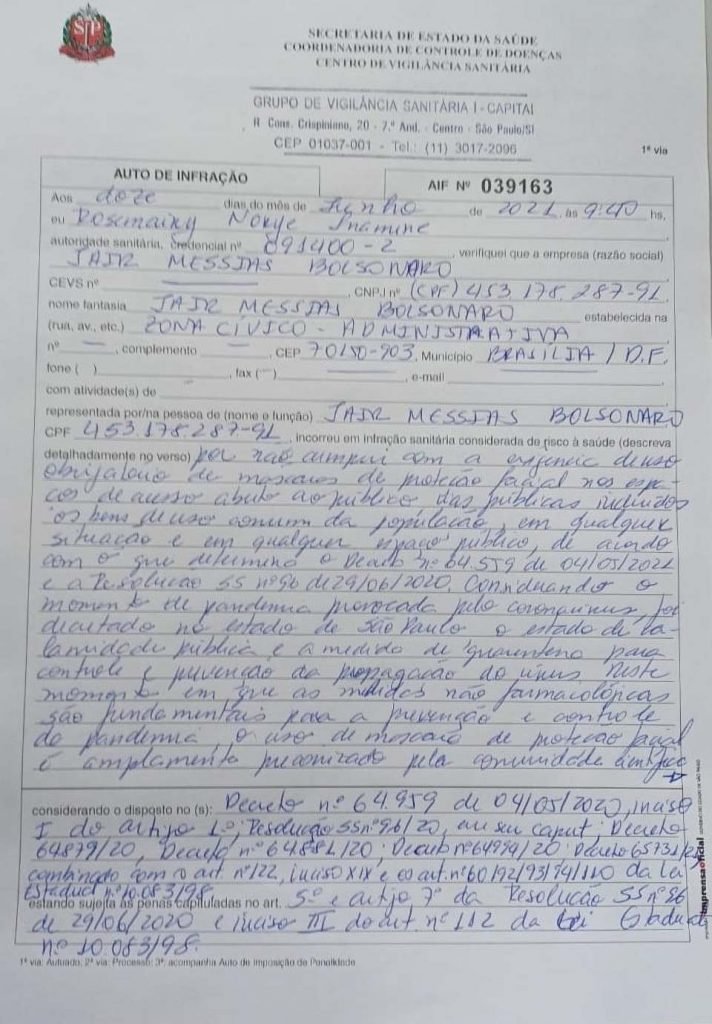 SECRETARIA DE ESTADO DA SAÚDE
COORDENADORIA DE CONTROLE DE DOENÇAS
CENTRO DE VIGILÂNCIA SANITÁRIA
GRUPO DE VIGILÂNCIA SANITÁRIA I - CAPITAL
R Cons. Crispiniano, 20 - 7.º And. - Centro - São Paulo/SP
CEP 01037-001 - Tel.: (11) 3017-2096
1ª via
AUTO DE INFRAÇÃO
AIF Nº 039163
Aos doze dias do mês de Junho de 2021, às 9:40 hs,
eu Rosemairy Norye Inamine
autoridade sanitária, credencial nº 891400-2, verifiquei que a empresa (razão social)
JAIR MESSIAS BOLSONARO
CEVS nº — , CNPJ nº (CPF) 453.178.287-91
nome fantasia JAIR MESSIAS BOLSONARO estabelecida na
(rua, av., etc.) ZONA CÍVICO - ADMINISTRATIVA
nº — , complemento — , CEP 70150-903, Município BRASÍLIA / D.F.
fone ( ) , fax ( ) , e-mail
com atividade(s) de
representada por/na pessoa de (nome e função) JAIR MESSIAS BOLSONARO
CPF 453.178.287-91, incorreu em infração sanitária considerada de risco à saúde (descreva
detalhadamente no verso) por não cumprir com a exigencia de uso
obrigatório de mascaras de proteção facial nos espa-
ços de acesso aberto ao público, das públicas incluidos
os bens de uso comum da população, em qualquer
situação e em qualquer espaço público, de acordo
com o que determina o Decreto nº 64.559 de 04/05/2021
e a Resolução SS nº 96 de 29/06/2020. Considerando o
momento de pandemia provocada pelo coronavirus, foi
decretado no estado de São Paulo o estado de ca-
lamidade pública e a medida de quarentena para
controle e prevenção da propagação do virus. Neste
momento em que as medidas não farmacológicas
são fundamentais para a prevenção e controle
da pandemia, o uso de mascara de proteção facial
é amplamente preconizado pela comunidade científica
considerando o disposto no (s): Decreto nº 64.959 de 04/05/2020, inciso
I do artigo 1º; Resolução SS nº 96/20, em seu caput; Decreto
64879/20, Decreto nº 64.881/20; Decreto nº 64994/20; Decreto 65731/21
combinado com o art. nº 122, inciso XIX e os art. nº 60/92/93/94/110 da Lei
Estadual nº 10.083/98.
estando sujeita às penas capituladas no art. 5º e artigo 7º da Resolução SS nº 96
de 29/06/2020 e inciso III do art. nº 112 da Lei Estadual
nº 10.083/98.
1ª via: Autuado. 2ª via: Processo: 3ª: acompanha Auto de Imposição de Penalidade
imprensaoficial